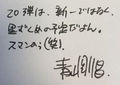 20弾は、新一ではなく、
星ずくめの予定だよん。
スマンのぅ(笑)。
青山剛昌